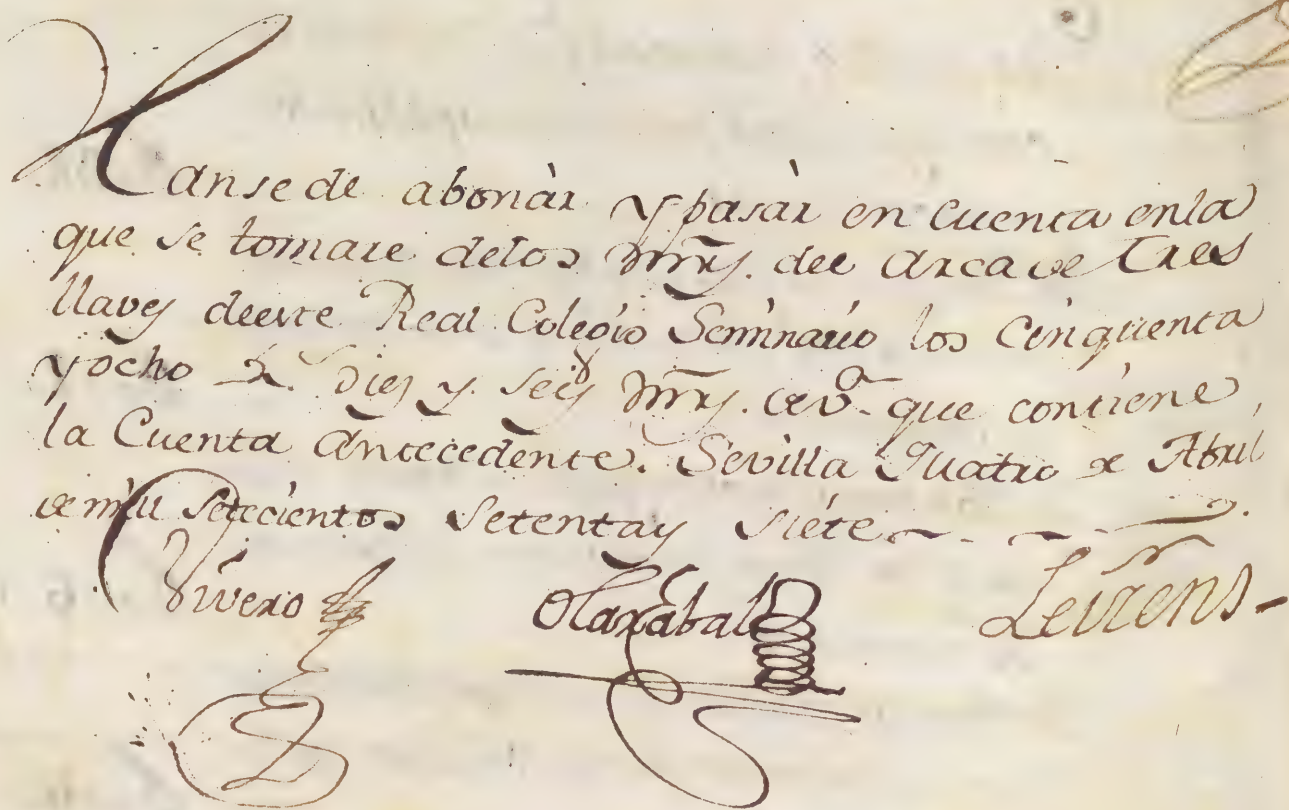 Hanse de abonàr y pasàr en Cuenta enla
que se tomare delos mrs. del Arca de Tres
llaves deeste Real Colegio Seminario los Cinquenta
y ocho rs. diez y seis mrs. de vn. que contiene,
la Cuenta Antecedente. Sevilla Quatro de Abril
de mill Setecientos Setentay siete
Vivero Olazabal Leirens